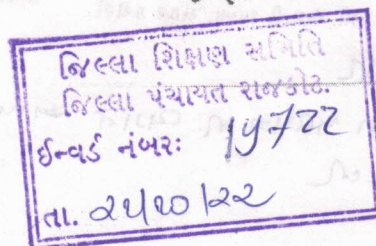 જિલ્લા શિક્ષણ સમિતિ
જિલ્લા પંચાયત રાજકોટ.
ઈન્વર્ડ નંબરઃ
તા. ૨૫/૧૦/૨૨